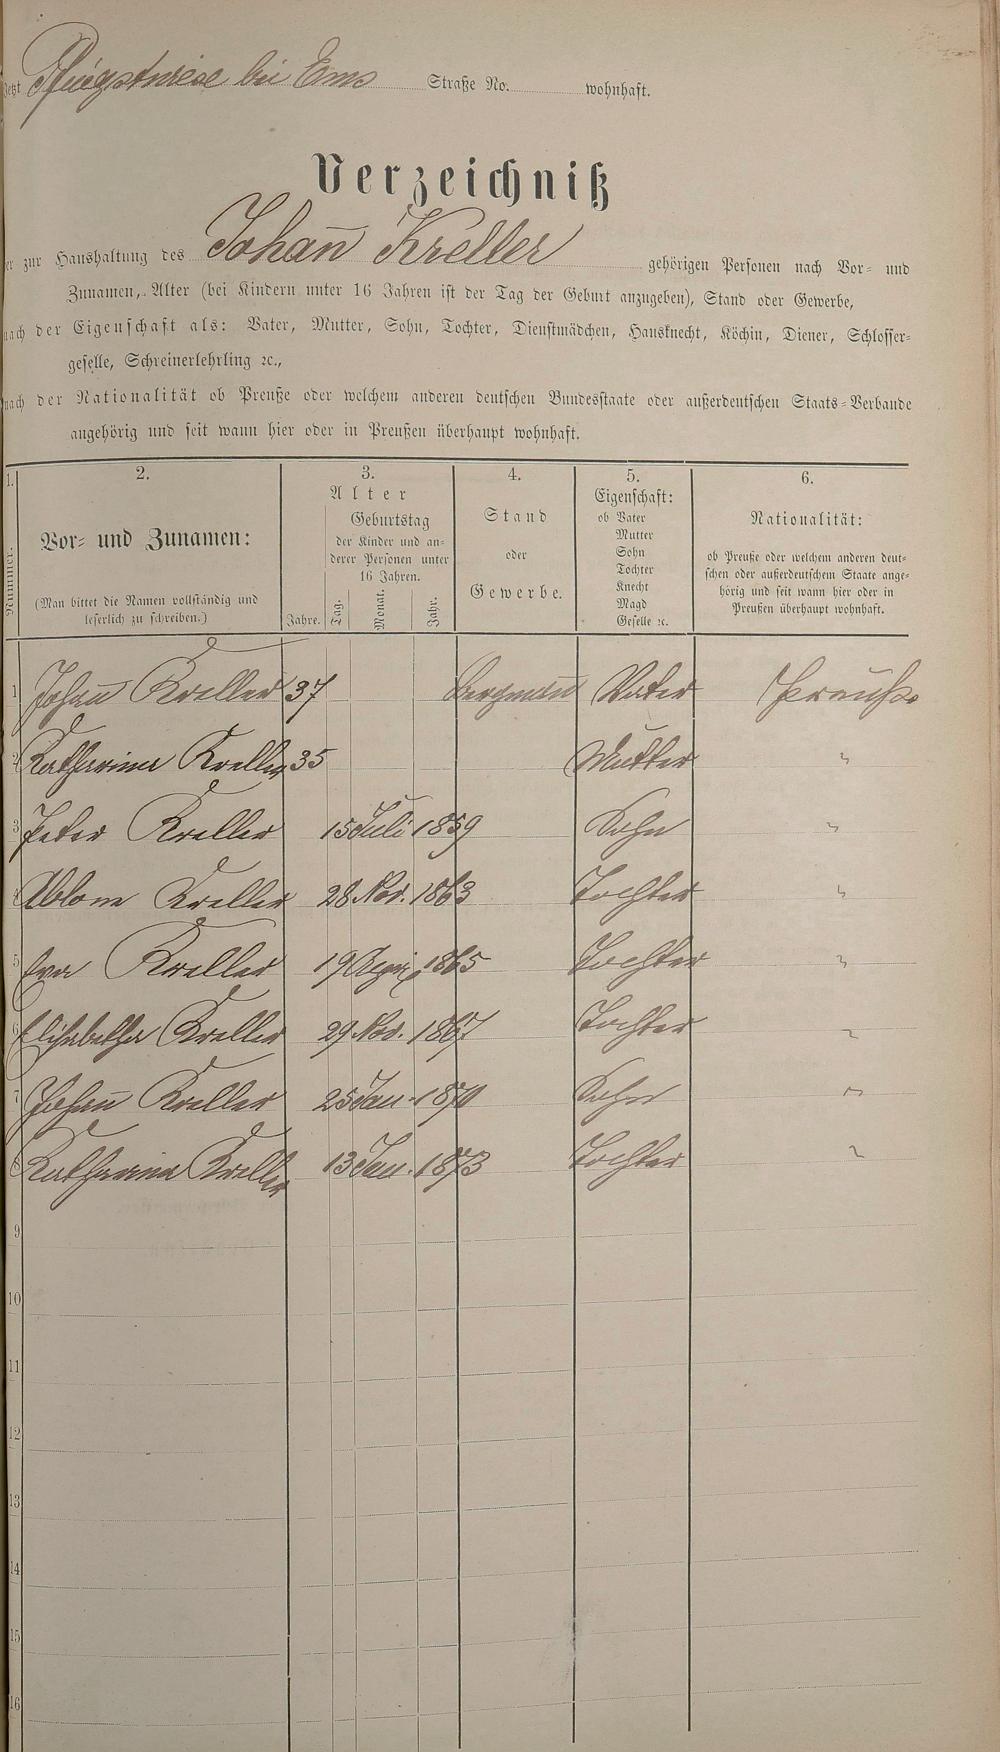 Jetzt Pfingstwiese bei Ems Straße No. wohnhaft.
Verzeichniß
der zur Haushaltung des Johan̄ Kreller gehörigen Personen nach Vor- und
Zunamen, Alter (bei Kindern unter 16 Jahren ist der Tag der Geburt anzugeben), Stand oder Gewerbe,
nach der Eigenschaft als: Vater, Mutter, Sohn, Tochter, Dienstmädchen, Hausknecht, Köchin, Diener, Schlosser-
geselle, Schreinerlehrling ꝛc.,
nach der Nationalität ob Preuße oder welchem anderen deutschen Bundesstaate oder außerdeutschen Staats-Verbande
angehörig und seit wann hier oder in Preußen überhaupt wohnhaft.
1. 2. 3. 4. 5. 6.
Nummer.
Vor- und Zunamen:
(Man bittet die Namen vollständig und
leserlich zu schreiben.)
Alter
Jahre.
Geburtstag
der Kinder und an-
derer Personen unter
16 Jahren.
Tag. Monat. Jahr.
Stand
oder
Gewerbe.
Eigenschaft:
ob Vater
Mutter
Sohn
Tochter
Knecht
Magd
Geselle ꝛc.
Nationalität:
ob Preuße oder welchem anderen deut-
schen oder außerdeutschem Staate ange-
hörig und seit wann hier oder in
Preußen überhaupt wohnhaft.
1 Johan̄ Kreller 37 Bergman̄ Vater Preuße
2 Katharina Kreller 35 Mutter "
3 Peter Kreller 15 Juli 1859 Sohn "
4 Kreller 28 Nov. 1863 Tochter "
5 Eva Kreller 19 April 1865 Tochter "
6 Elisabetha Kreller 29 Nov. 1867 Tochter "
7 Johan̄ Kreller 25 Jan. 1870 Sohn "
8 Katharina Kreller 13 Jan. 1873 Tochter "
9
10
11
12
13
14
15
16